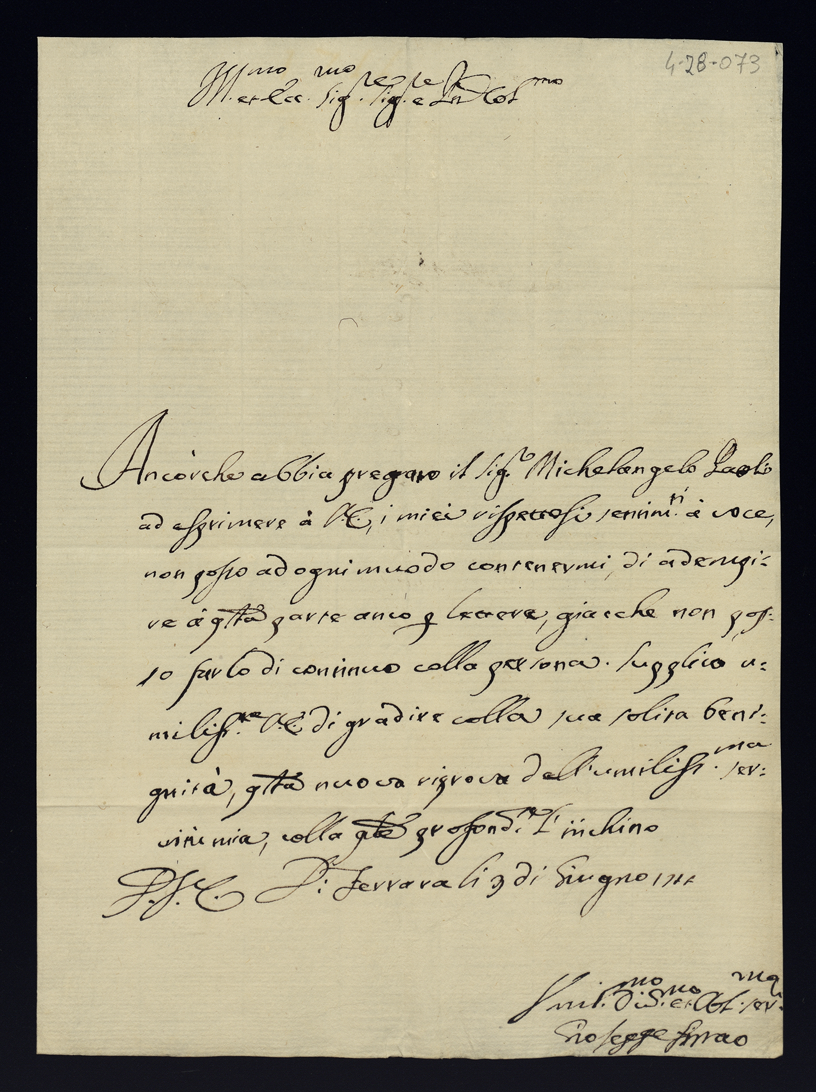 4-28-073
Ill.mo et Ecc.mo Sig.re Sig.re e P.ne Col.mo
Ancorche abbia pregato il Sig.r Michelangelo Paoli
ad esprimere à V.E., i miei rispettosi sentim.ti à voce,
non posso ad ogni muodo contenermi, di adempi-
re à q.ta parte anco p lettera, giacche non pos-
so farlo di continuo colla persona. Supplico u-
miliss.te V.E. di gradire colla sua solita beni-
gnità, q.ta nuova ripruova dell'umiliss.ma ser-
vitù mia, colla q.le profond.te l'inchino
D.V.E. Di Ferrara li 9 di Giugno
Umil.mo Div.mo et Obl. ser.
Gioseppe